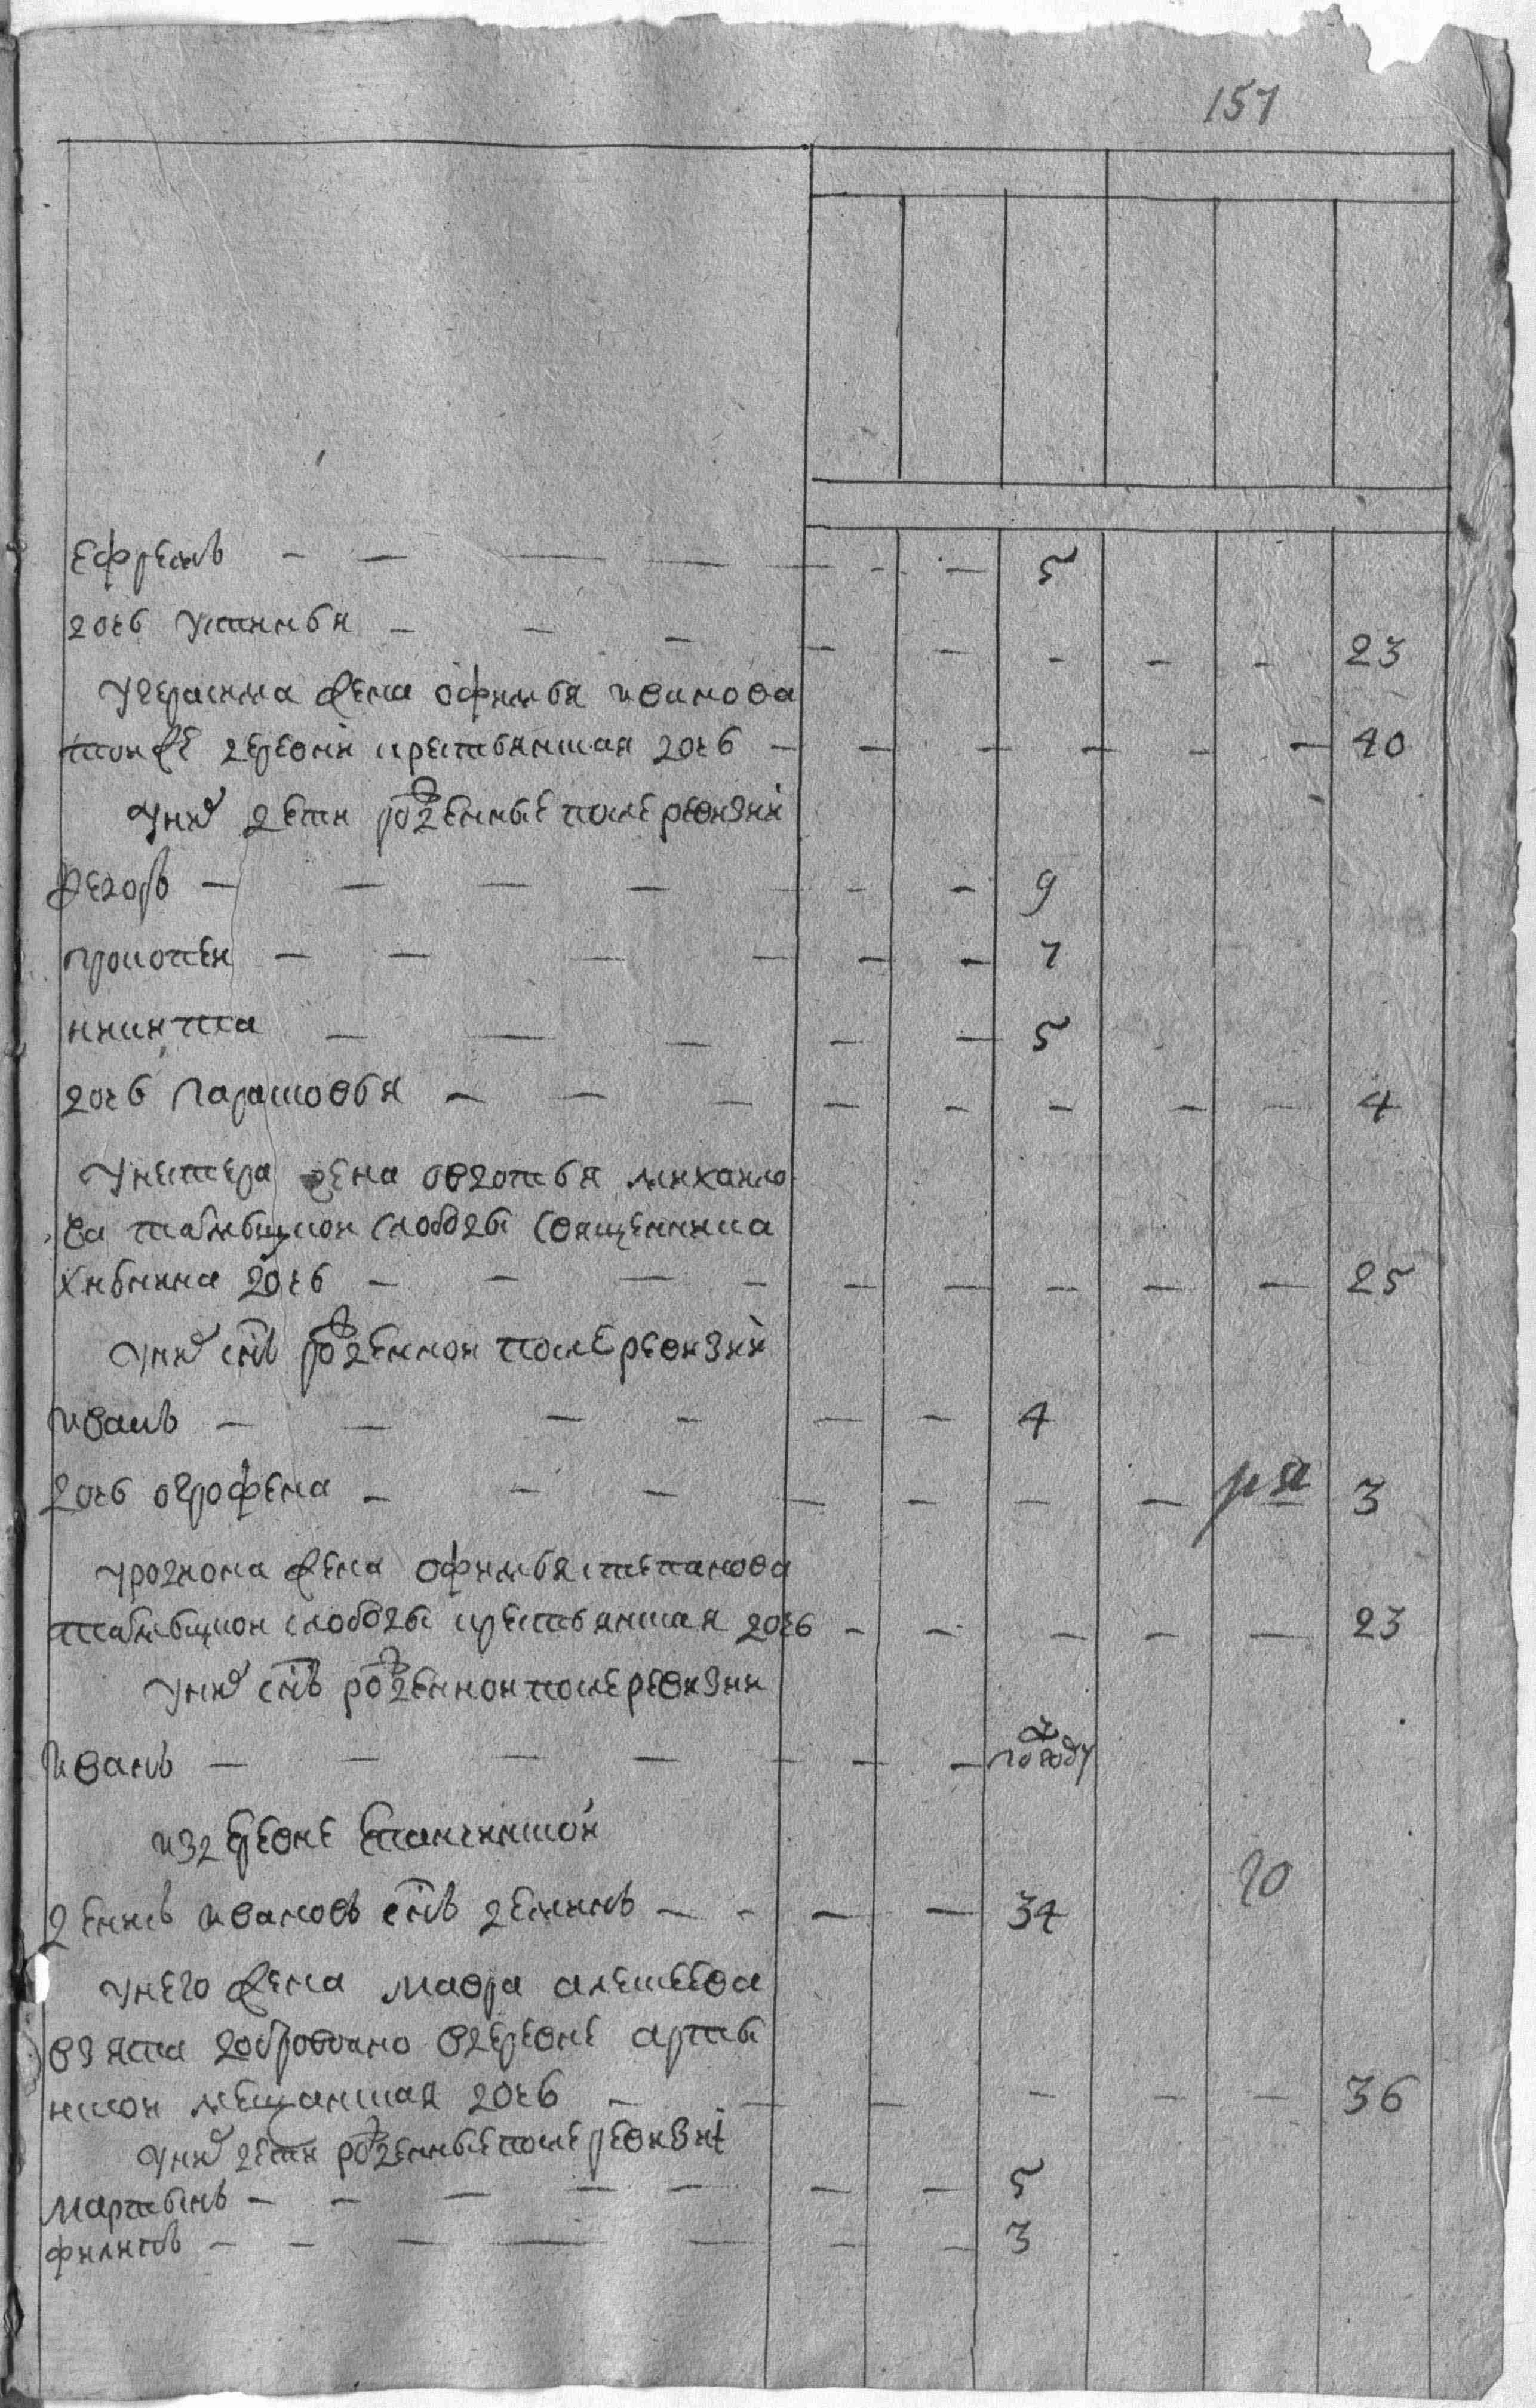 157
ефремъ — — — — — — — 5
дочь устинья — — — — — — — — 23
у герасима жена офимья иванова
тоиже деревни крестьянская дочь — — — — — — 40
у них дети рожденные после ревизиі
федоръ — — — — — — — 9
прокопеи — — — — — — 7
никита — — — — — 5
дочь парасковья — — — — — — — — 4
у нестера жена овдотья михаило
ва табынскои слободы священника
хибинина дочь — — — — — — — — — 25
у них снъ рожденнои после ревизиі
иванъ — — — — — — 4
дочь огрофена — — — — — — — 3
у родиона жена офимья степанова
табынскои слободы крестьянская дочь — — — — — 23
у них снъ рожденнои после ревизии
иванъ — — — — — — — по году
из деревне
20
демидъ ивановъ снъ деминъ — — — — 34
у него жена мавра алексеева
взята в деревне арты
нскои мещанская дочь — — — — — — 36
у них дети рожденные после ревизиі
мартынъ — — — — — — — 5
филипъ — — — — — — — 3